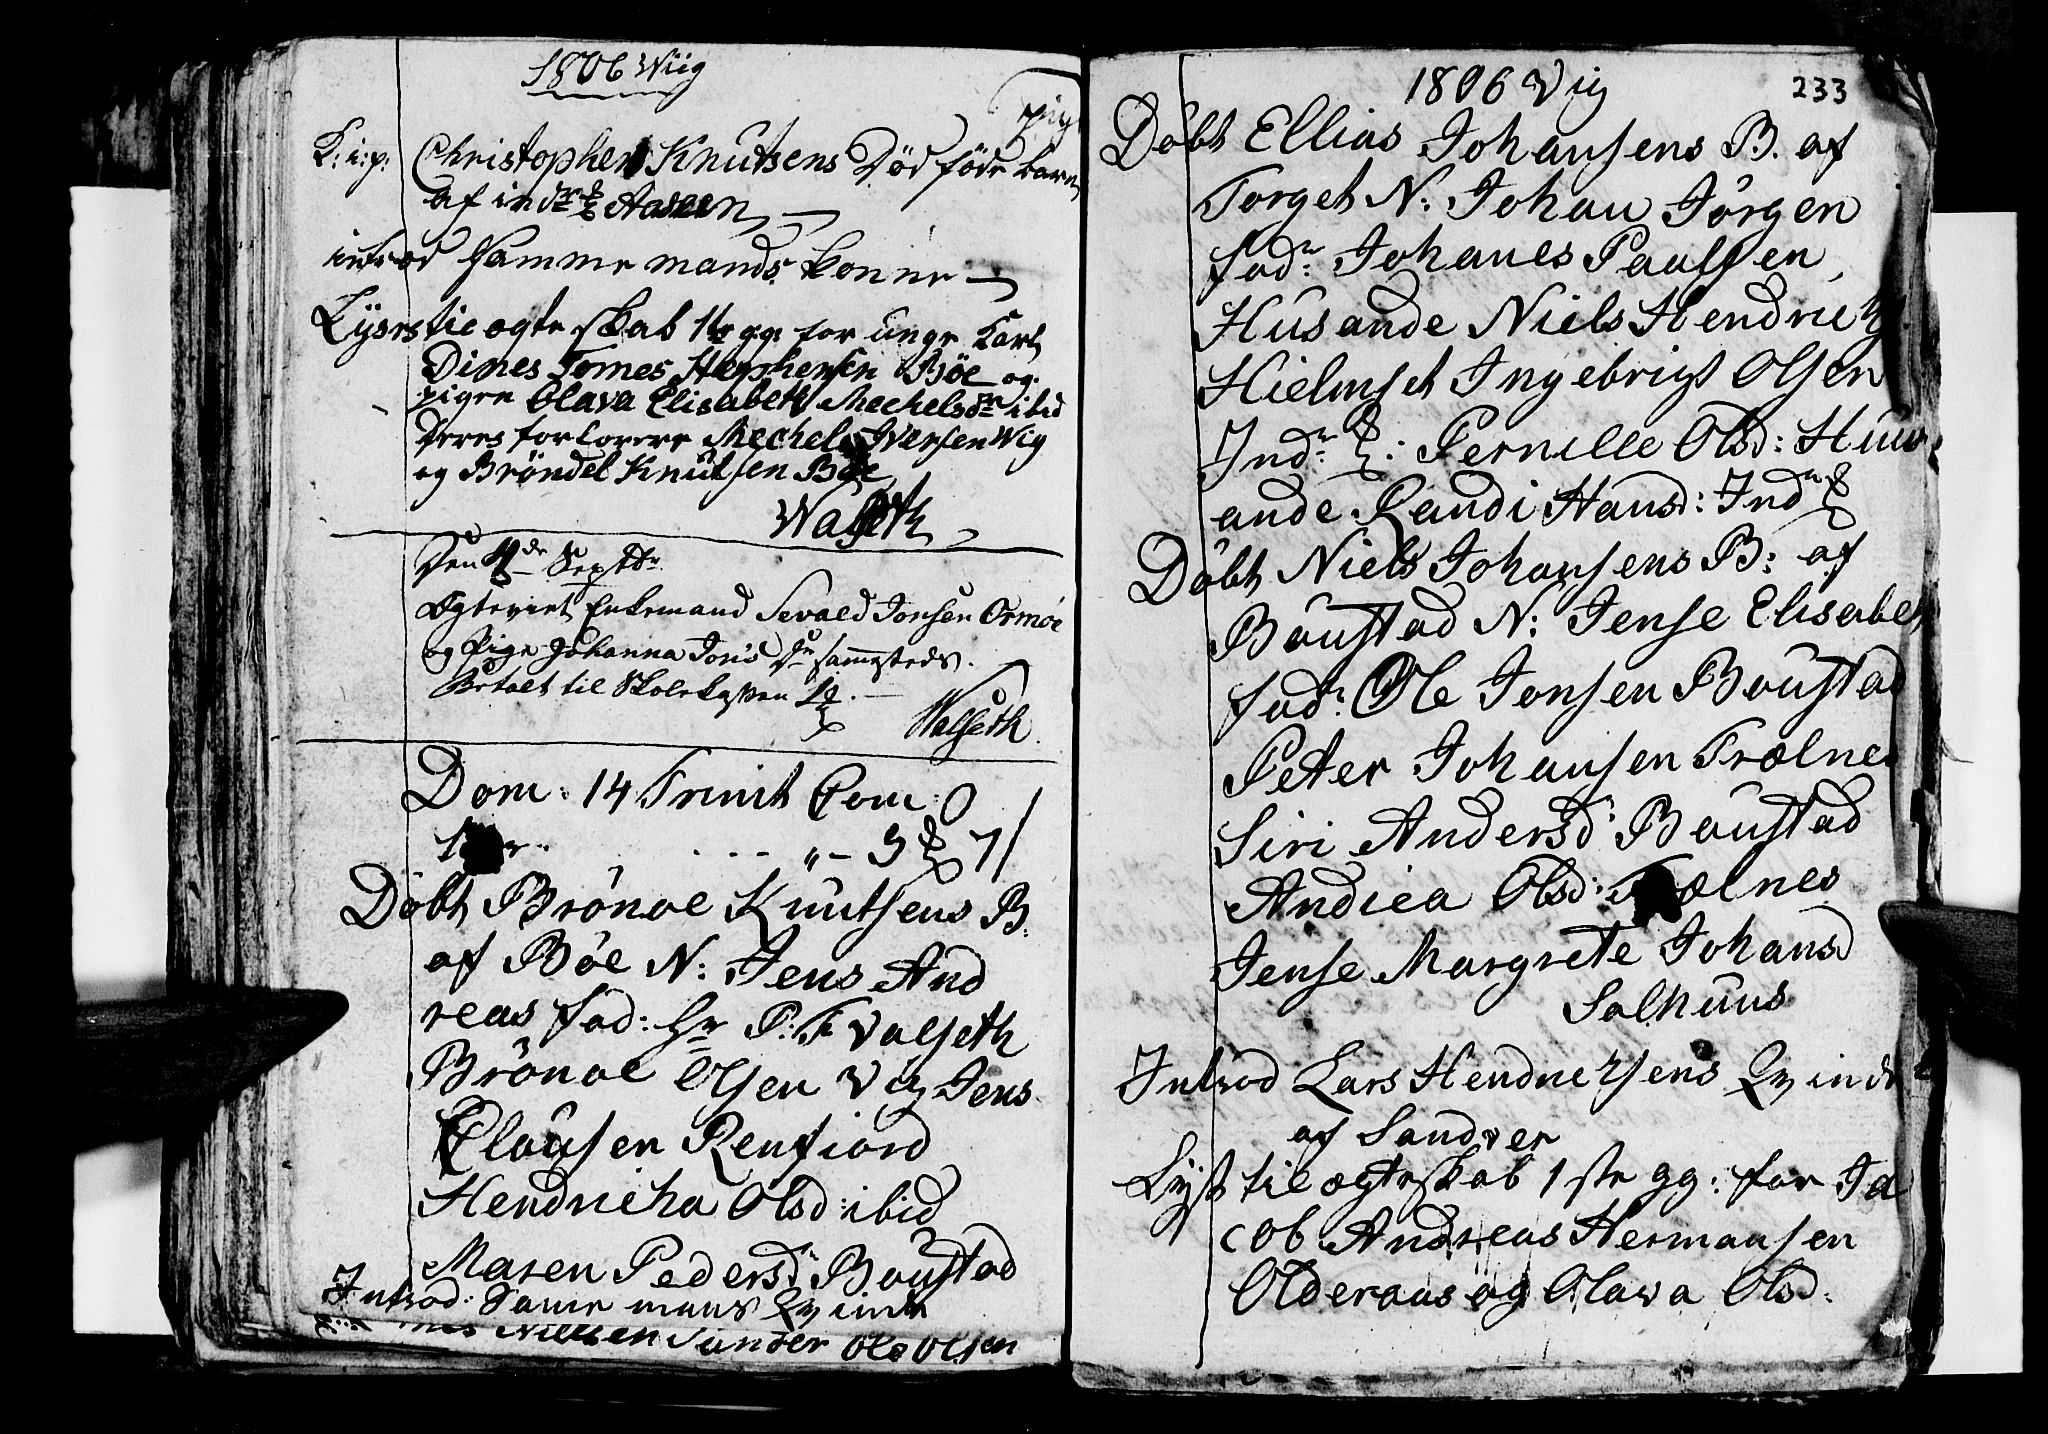 1806 Wiig
K: i: p: Christopher Knutsens Død føde barn
af indr Aaseen
introd Samme mands konne
Lysts tie ægte skab 1ste gg. for unge Karl
Dines Tomes Stephensen Böe og
pigen Olava Elisabeth Mechelsdr ibid
Deres forlovere Mechel Iversen Wig
og Bröndel Knutsen Böe
Walseth
Den 4de Septbr
Egteviet Enkemand Sevald Jonsen Ormöe
og Pige Johanna Jonsdr sammesteds.
Betalt til Skolekassen
Walseth.
Dom: 14 Trinit Com: 0
3 7/
Döbt Brönoe Knutsens B.
af Böe N: Jens And
reas fad: Hr P: F Valseth
Brönoe Olsen Vig Jens
Clausen Renfiord
Hendricha Olsd: ibid
Maren Pedersd Boustad
Introd: Samme mans Qvinde
Nielsen Ole Olsen
1806 Vig 233
Döbt Ellias Johansens B. af
Torget N: Johan Jörgen
fadr: Johanes Paulsen
Husande Niels Hendrick
Hielmset Ingebrigt Olsen
Indr: Pernille Olsd: Huus
ande Randi Hansd: Indr
Döbt Niels Johansens B: af
Boustad N: Jense Elisabet
fadr: Ole Jonsen Boustad
Peter Johansen Trælnes
Siri Andersd Boustad
Andrea Olsd: Trælnes
Jense Margrete Johansd
Salhuus
Introd Lars Hendricksens Qvinde
af Sandver
Lyst til ægteskab 1ste gg: for Ja
cob Andreas Hermansen
Olderaas og Olava Olsd: